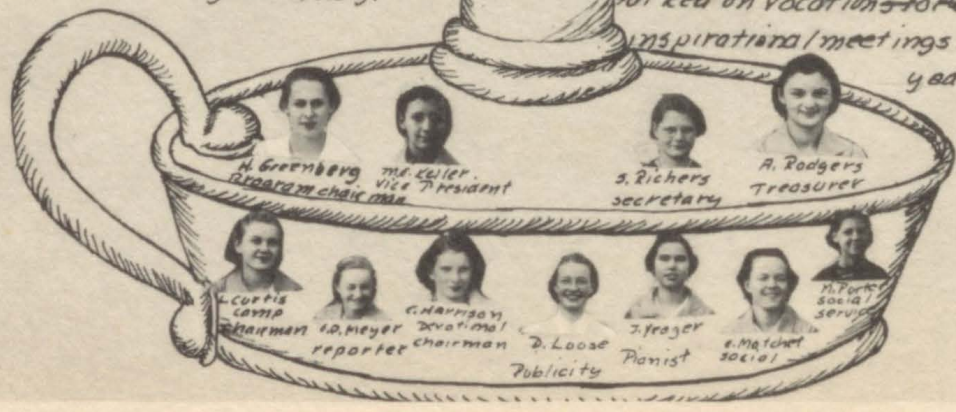 on vocations
inspirational meetings
H. Greenberg
Program chairman
Md. Keller
Vice President
S. Richers
secretary
A. Rodgers
Treasurer
L. Curtis
camp
chairman
D. Meyer
reporter
C. Harrison
Devotional
chairman
D. Loose
Publicity
J. Yeager
Pianist
e. Matchet
social
M. Porte
social
service